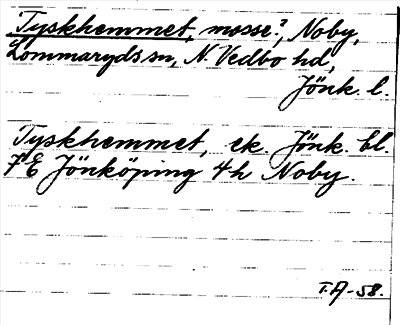 Tyskhemmet, mosse?, Noby,
Lommaryds sn, N. Vedbo hd,
Jönk. l.
Tyskhemmet, ek. Jönk. bl.
7 E Jönköping 4h Noby.
T.A-58.